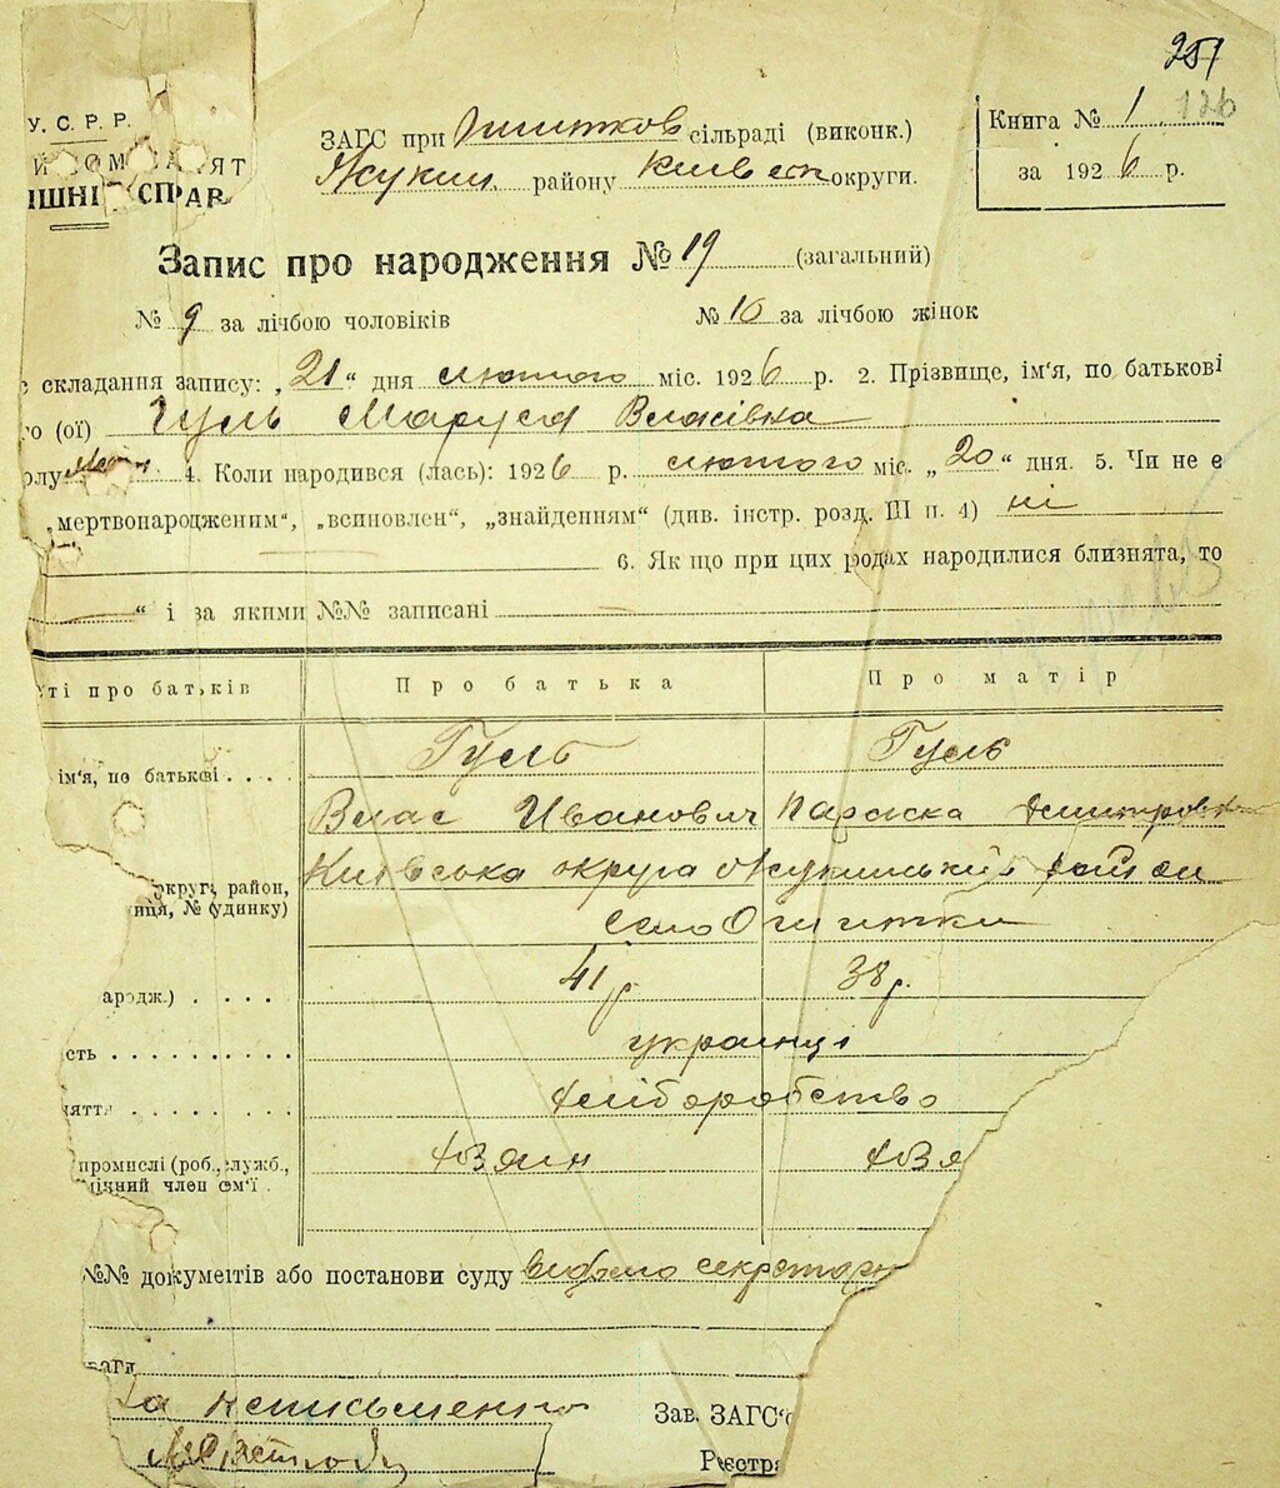 251
У. С. Р. Р.
ІШНІ СПРАВ
ЗАГС при Опитков сільраді (виконк.)
Жукин. району Київськ округи.
Книга № 1 126
за 1926 р.
Запис про народження № 19 (загальний)
№ 9 за лічбою чоловіків № 10 за лічбою жінок
складання запису: „21“ дня лютого міс. 1926 р. 2. Прізвище, ім'я, по батькові
го (ої) Гуль Маруся Власівна
4. Коли народився (лась): 1926 р. лютого міс. „20“ дня. 5. Чи не є
„мертвонародженим“, „всиновлен“, „знайденням“ (див. інстр. розд. III п. 4) ні
6. Як що при цих родах народилися близнята, то
“ і за якими №№ записані
ті про батьків Про батька Про матір
Гуль Гуль
ім'я, по батькові . . . .
Влас Иванович Параска Дмитровна
Київська округа Жукинський район
округи, район,
иця, № будинку)
село Опитки
ародж.) . . . . 41 р. 38 р.
сть . . . . . . . . . . українці
яття . . . . . . . . хліборобство
промислі (роб., служб., хозяин хозя
ічний член сем'ї .
№№ документів або постанови суду
ваги
неписьменно Зав. ЗАГС'о
Реєстра